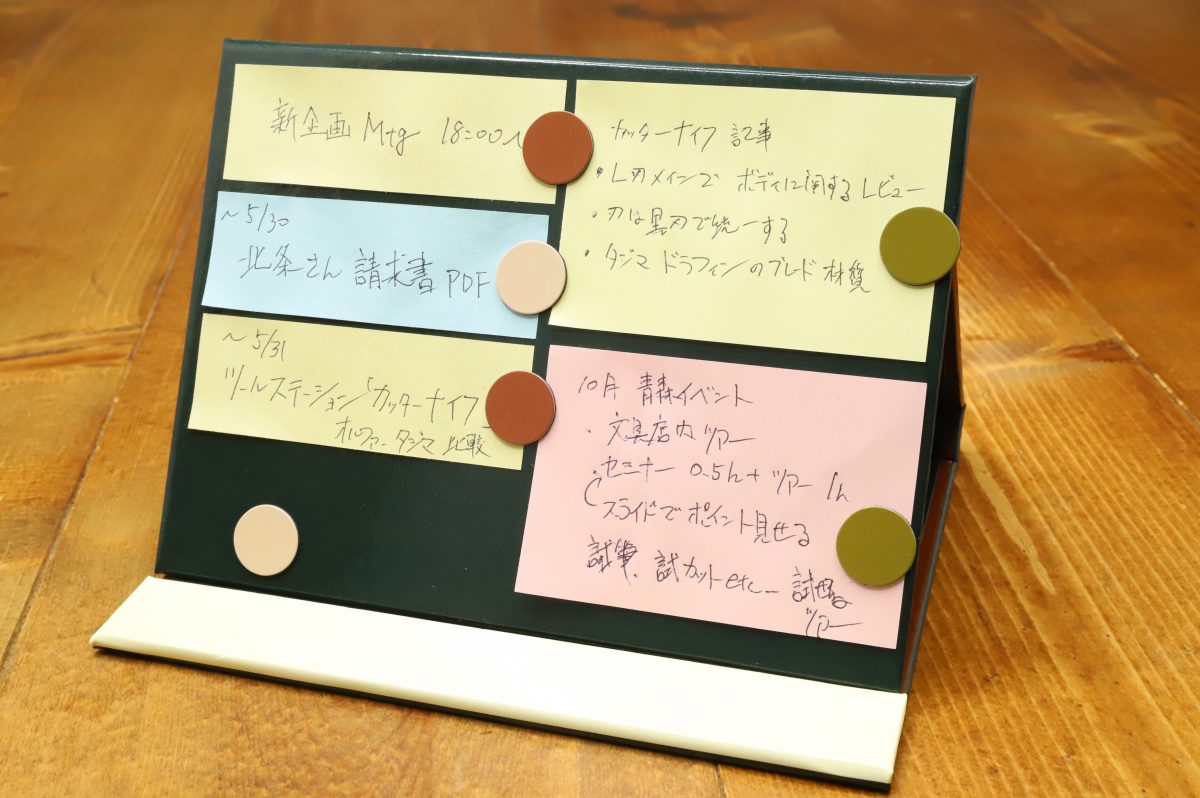 新企画 Mtg 18:00〜
〜5/30
北条さん 請求書 PDF
〜5/31
ツールステーション「カッターナイフ」
オルファ、タジマ 比較
カッターナイフ 記事
・L刃メインで ボディに関するレビュー
・刃は黒刃で統一する
・タジマ ドラフィンのブレード 材質
10月 青森イベント
・文具店内ツアー
・セミナー 0.5h + ツアー 1h
スライドでポイント見せる
試筆、試カット etc…
ツアー